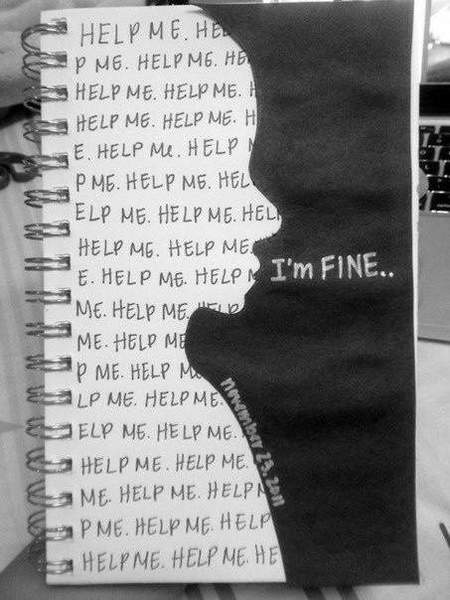 HELP ME. HE
P ME. HELP ME. HE
HELP ME. HELP ME. H
HELP ME. HELP ME. H
E. HELP Me. HELP
P ME. HELP ME. HEL
ELP ME. HELP ME. HEL
HELP ME. HELP ME.
I'm FINE..
E. HELP ME. HELP M
ME. HELP ME. HELP
ME. HELP ME
P ME. HELP M
LP ME. HELP ME.
november 23, 2011
ELP ME. HELP ME.
HELP ME. HELP ME.
ME. HELP ME. HELP M
P ME. HELP ME. HELP
HELP ME. HELP ME. HE